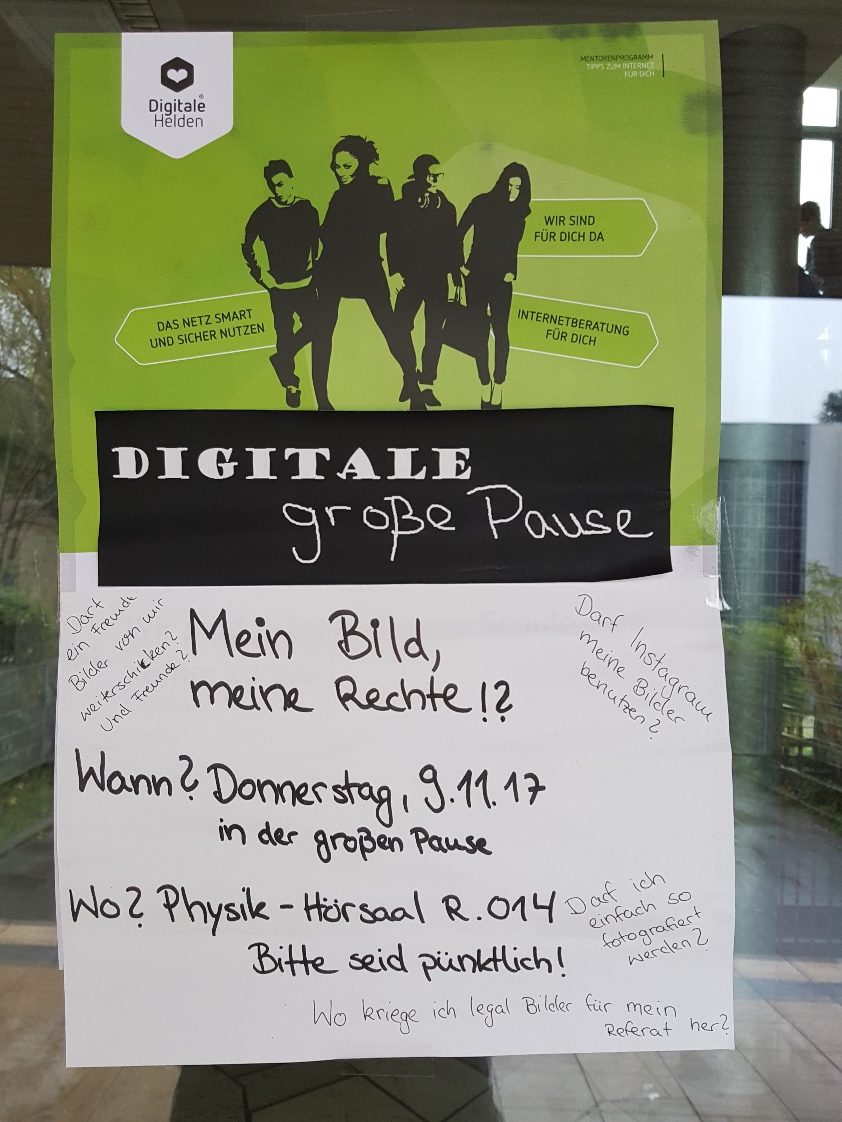 Digitale
Helden
MENTORENPROGRAMM
TIPPS ZUM INTERNET
FÜR DICH
WIR SIND
FÜR DICH DA
DAS NETZ SMART
UND SICHER NUTZEN
INTERNETBERATUNG
FÜR DICH
DIGITALE
große Pause
Darf
ein Freund
Bilder von mir
weiterschicken?
Und Freunde?
Mein Bild,
meine Rechte!?
Darf Instagram
meine Bilder
benutzen?
Wann? Donnerstag, 9.11.17
in der großen Pause
Wo? Physik-Hörsaal R.014
Bitte seid pünktlich!
Darf ich
einfach so
fotografiert
werden?
Wo kriege ich legal Bilder für mein
Referat her?